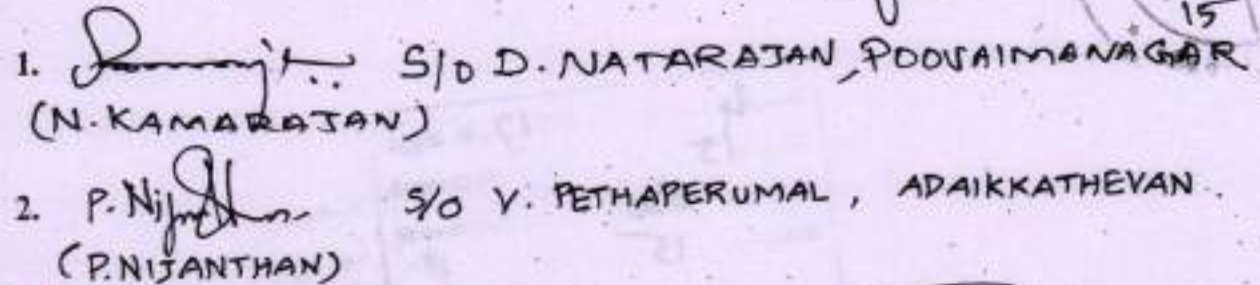 15
1. S/o D. NATARAJAN, POOVAIMANAGAR
(N. KAMARAJAN)
2. P. Nijanthan S/o V. PETHAPERUMAL, ADAIKKATHEVAN.
(P. NIJANTHAN)